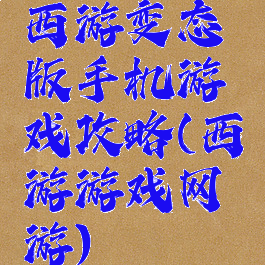 西游变态
版手机游
戏攻略(西
游游戏网
游)